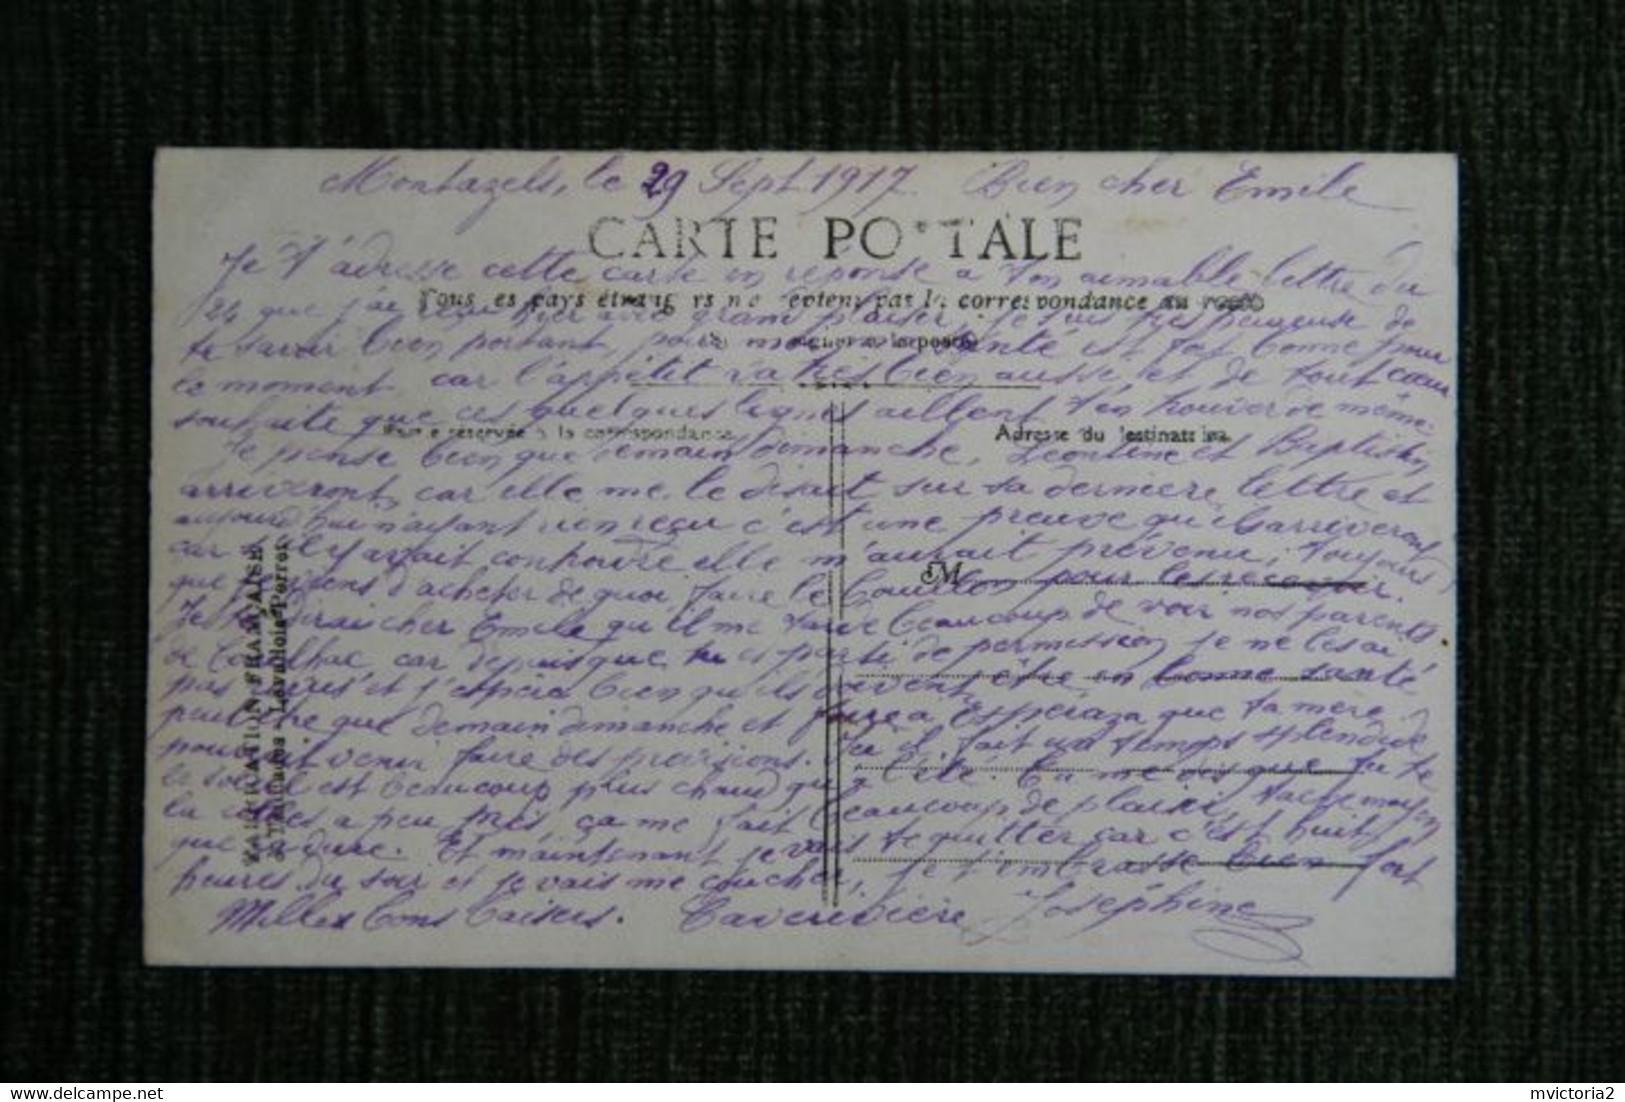 Montazels, le 29 Sept 1917. Bien cher Emile
CARTE POSTALE
Je t'adresse cette carte en réponse a ton aimable lettre du
Tous les pays étrangers n'acceptent pas la correspondance au recto
24 que j'ai reçu hier avec grand plaisir. Je suis très heureuse de
te savoir bien portant, pour moi santé est fort bonne pour
le moment, car l'appétit va très bien aussi, et de tout coeur
souhaite que ces quelques lignes aillent t'en trouver de même.
Partie réservée à la correspondance
Adresse du destinataire
Je pense bien que demain dimanche, Leontine et Baptistin
arriveront, car elle me le disait sur sa derniere lettre et
aujourd'hui n'ayant rien reçu c'est une preuve qu'ils arriveront
car s'il y avait contraire elle m'aurait prévenu, toujours
M
que je viens d'acheter de quoi faire le bouillon pour les recevoir.
Je te dirai cher Emile qu'il me tarde beaucoup de voir nos parents
de car depuis que tu es parti de permission je ne les ai
pas vus et j'espère bien qu'ils doivent être en bonne santé
peut être que demain dimanche et foire a Esperaza que ta mère
pourrait venir faire des provisions. Ici il fait un temps splendide
le soleil est beaucoup plus chaud qu'a l'été. Tu me dis que tu te
la a peu près ça me fait beaucoup de plaisir,
que ça dure. Et maintenant je vais te quitter car c'est huit
heures du soir et je vais me coucher, je t'embrasse bien fort
Milles bons baisers. Taverivière Joséphine
FABRICATION FRANÇAISE
Levallois-Perret
mvictoria2